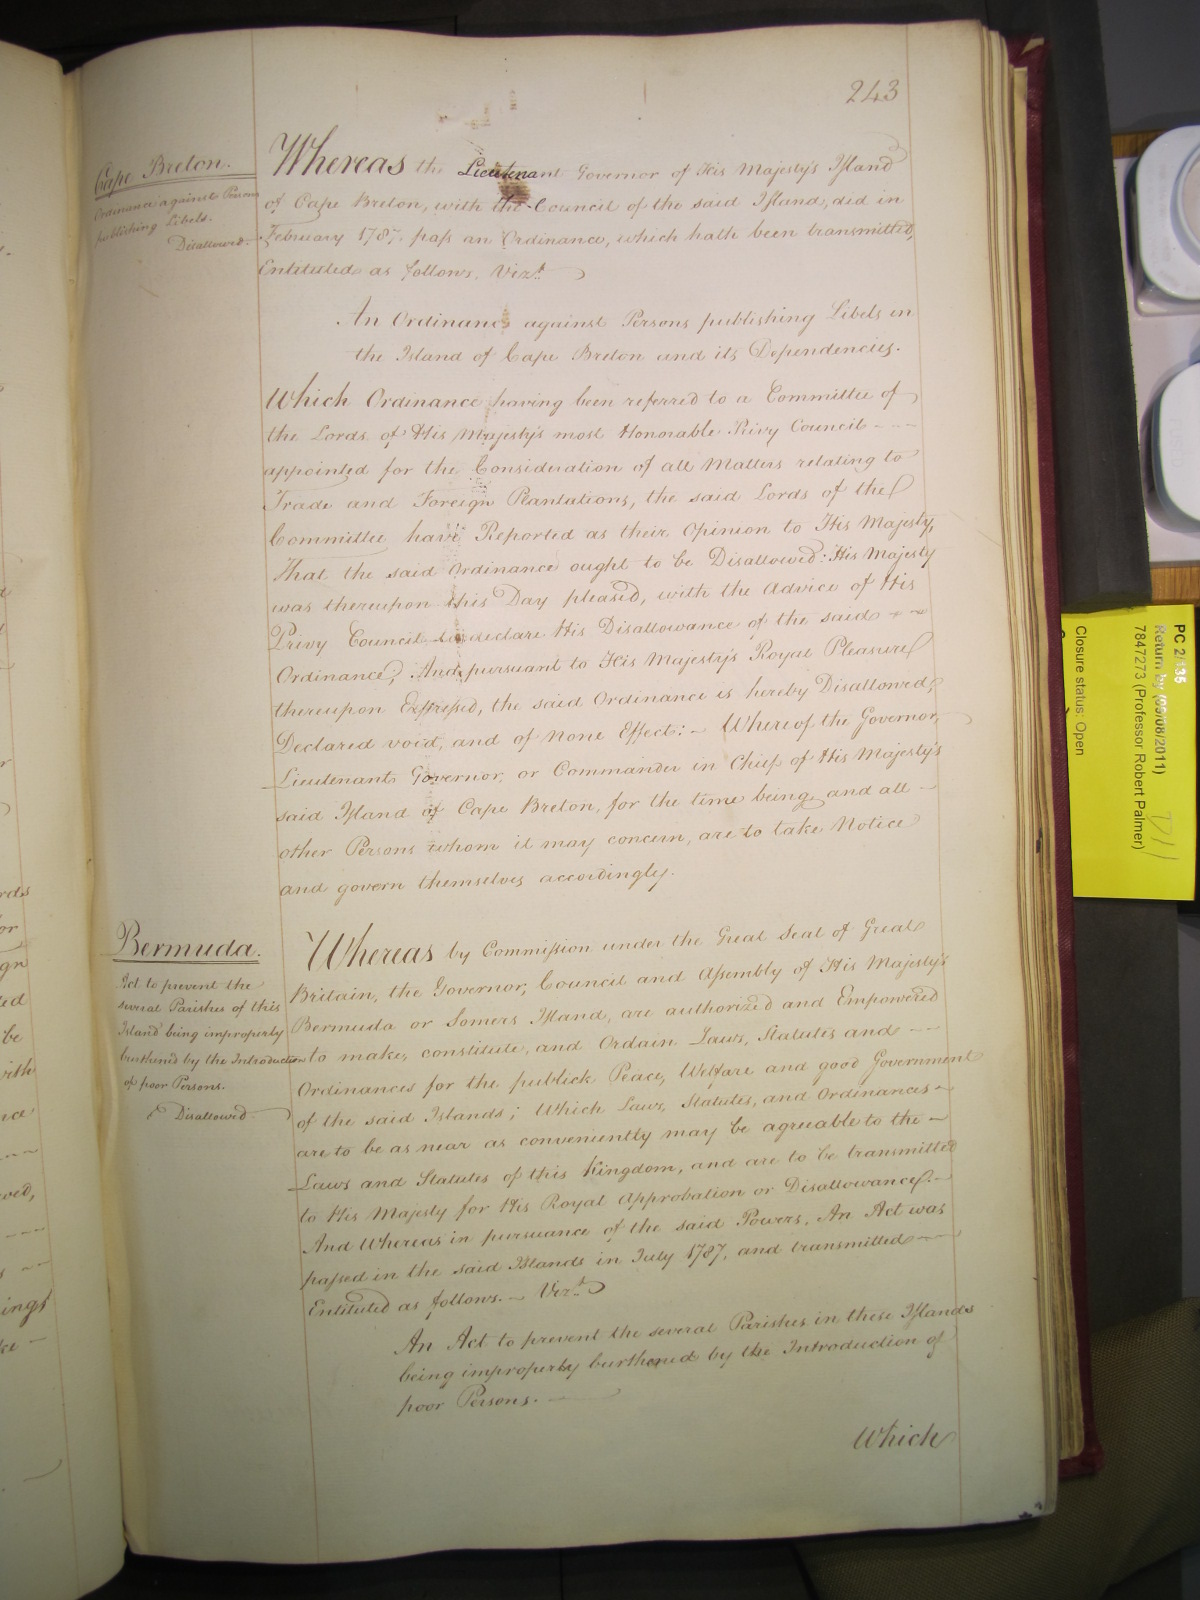 243
Cape Breton.
Ordinance against Persons
publishing Libels.
Disallowed.
Whereas the Lieutenant Governor of His Majesty's Island
of Cape Breton, with the Council of the said Island, did in
February 1787. pass an Ordinance, which hath been transmitted,
Entituled as follows. Vizt.
An Ordinance against Persons publishing Libels in
the Island of Cape Breton and its Dependencies.
Which Ordinance having been referred to a Committee of
the Lords of His Majesty's most Honorable Privy Council - - -
appointed for the Consideration of all Matters relating to
Trade and Foreign Plantations, the said Lords of the
Committee have Reported as their Opinion to His Majesty,
That the said Ordinance ought to be Disallowed: His Majesty
was thereupon this Day pleased, with the Advice of His
Privy Council to declare His Disallowance of the said
Ordinance; And pursuant to His Majesty's Royal Pleasure
thereupon Expressed, the said Ordinance is hereby Disallowed,
Declared void, and of None Effect: - Whereof the Governor,
Lieutenant Governor, or Commander in Chief of His Majesty's
said Island of Cape Breton, for the time being, and all -
other Persons whom it may concern, are to take Notice
and govern themselves accordingly.
Bermuda.
Act to prevent the
several Parishes of this
Island being improperly
burthened by the Introduction
of poor Persons.
Disallowed.
Whereas by Commission under the Great Seal of Great
Britain, the Governor, Council and Assembly of His Majesty's
Bermuda or Somers Island, are authorized and Empowered
to make, constitute, and Ordain Laws, Statutes and - -
Ordinances for the publick Peace, Welfare and good Government
of the said Islands; Which Laws, Statutes, and Ordinances -
are to be as near as conveniently may be agreeable to the -
Laws and Statutes of this Kingdom, and are to be transmitted
to His Majesty for His Royal Approbation or Disallowance. -
And Whereas in pursuance of the said Powers, An Act was
passed in the said Islands in July 1787, and transmitted -
Entituled as follows. - Vizt.
An Act to prevent the several Parishes in these Islands
being improperly burthened by the Introduction of
poor Persons. -
Which
PC 2/135
Return by (09/08/2011)
7847273 (Professor Robert Palmer)
Closure status: Open